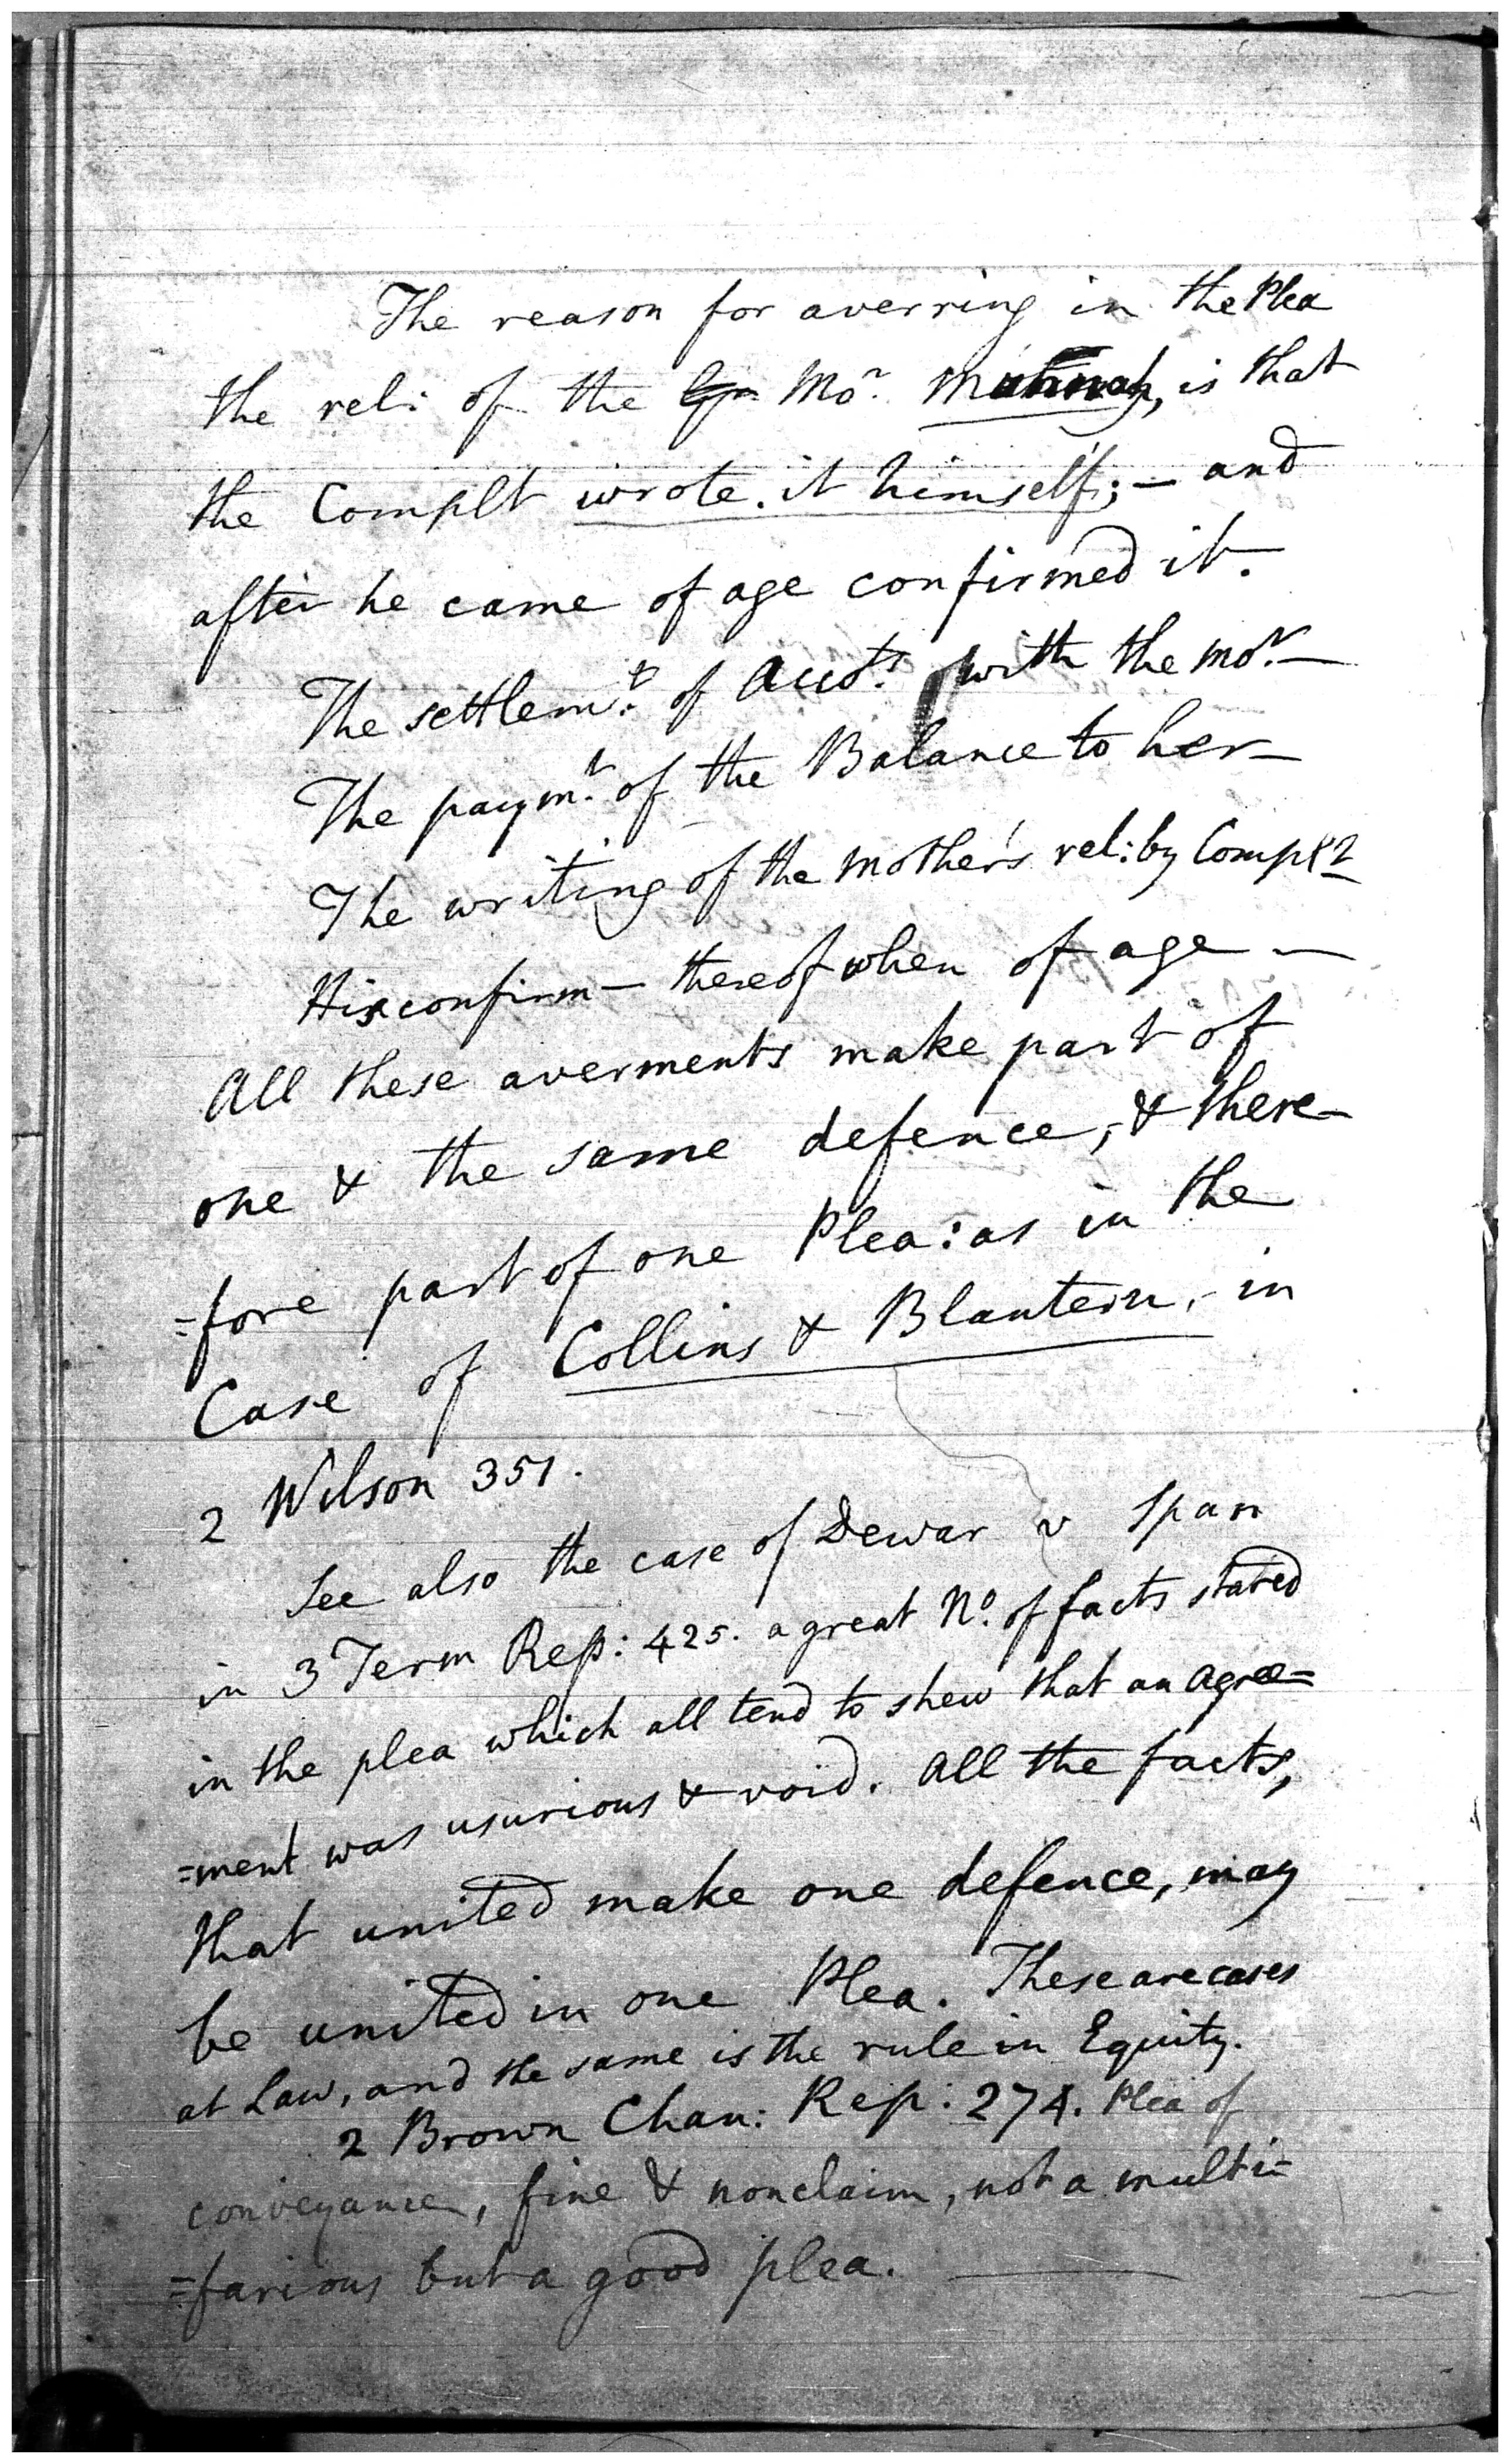 The reason for averring in the Plea
the rel: of the Mor. is that
the Complt wrote it himself; — and
after he came of age confirmed it.
The settlemt. of Accots. with the mor. —
The paymt. of the Balance to her —
The writing of the mother's rel: by Complt
His confirm — thereof when of age —
All these averments make part of
one & the same defence, & there-
=fore part of one Plea: as in the
Case of Collins & Blantern, in
2 Wilson 351.
See also the case of Dewar v Span
in 3 Term Rep: 425. a great No. of facts stated
in the plea which all tend to shew that an agree=
=ment was usurious & void. All the facts,
that united make one defence, may
be united in one Plea. These are cases
at Law, and the same is the rule in Equity.
2 Brown Chan: Rep: 274. Plea of
conveyance, fine & nonclaim, not a multi=
=farious but a good plea.